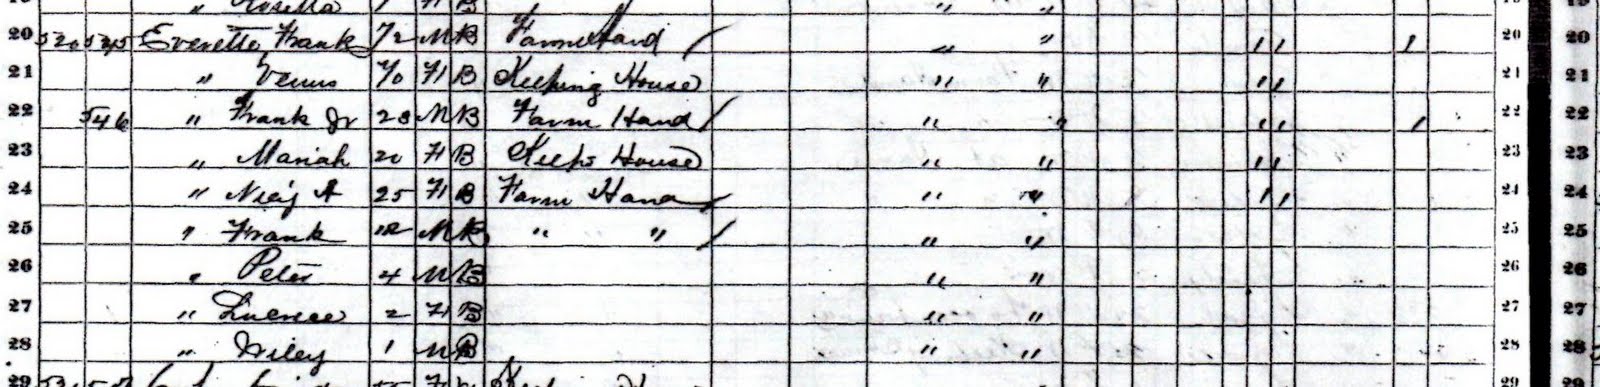 " Rosetta 7 F B " "
20 520 545 Everette Frank 72 M B Farm Hand / " " " 1 20 20
21 " Venus 70 F B Keeping House " " " 21 21
22 546 " Frank Jr 23 M B Farm Hand / " " " 1 22 22
23 " Mariah 20 F B Keeps House " " " 23 23
24 " A 25 F B Farm Hand / " " " 24 24
25 " Frank 12 M B " " / " " 25 25
26 " Peter 4 M B " " 26 26
27 " 2 F B " " 27 27
28 " Wiley 1 M B " " 28 28
29 29 29